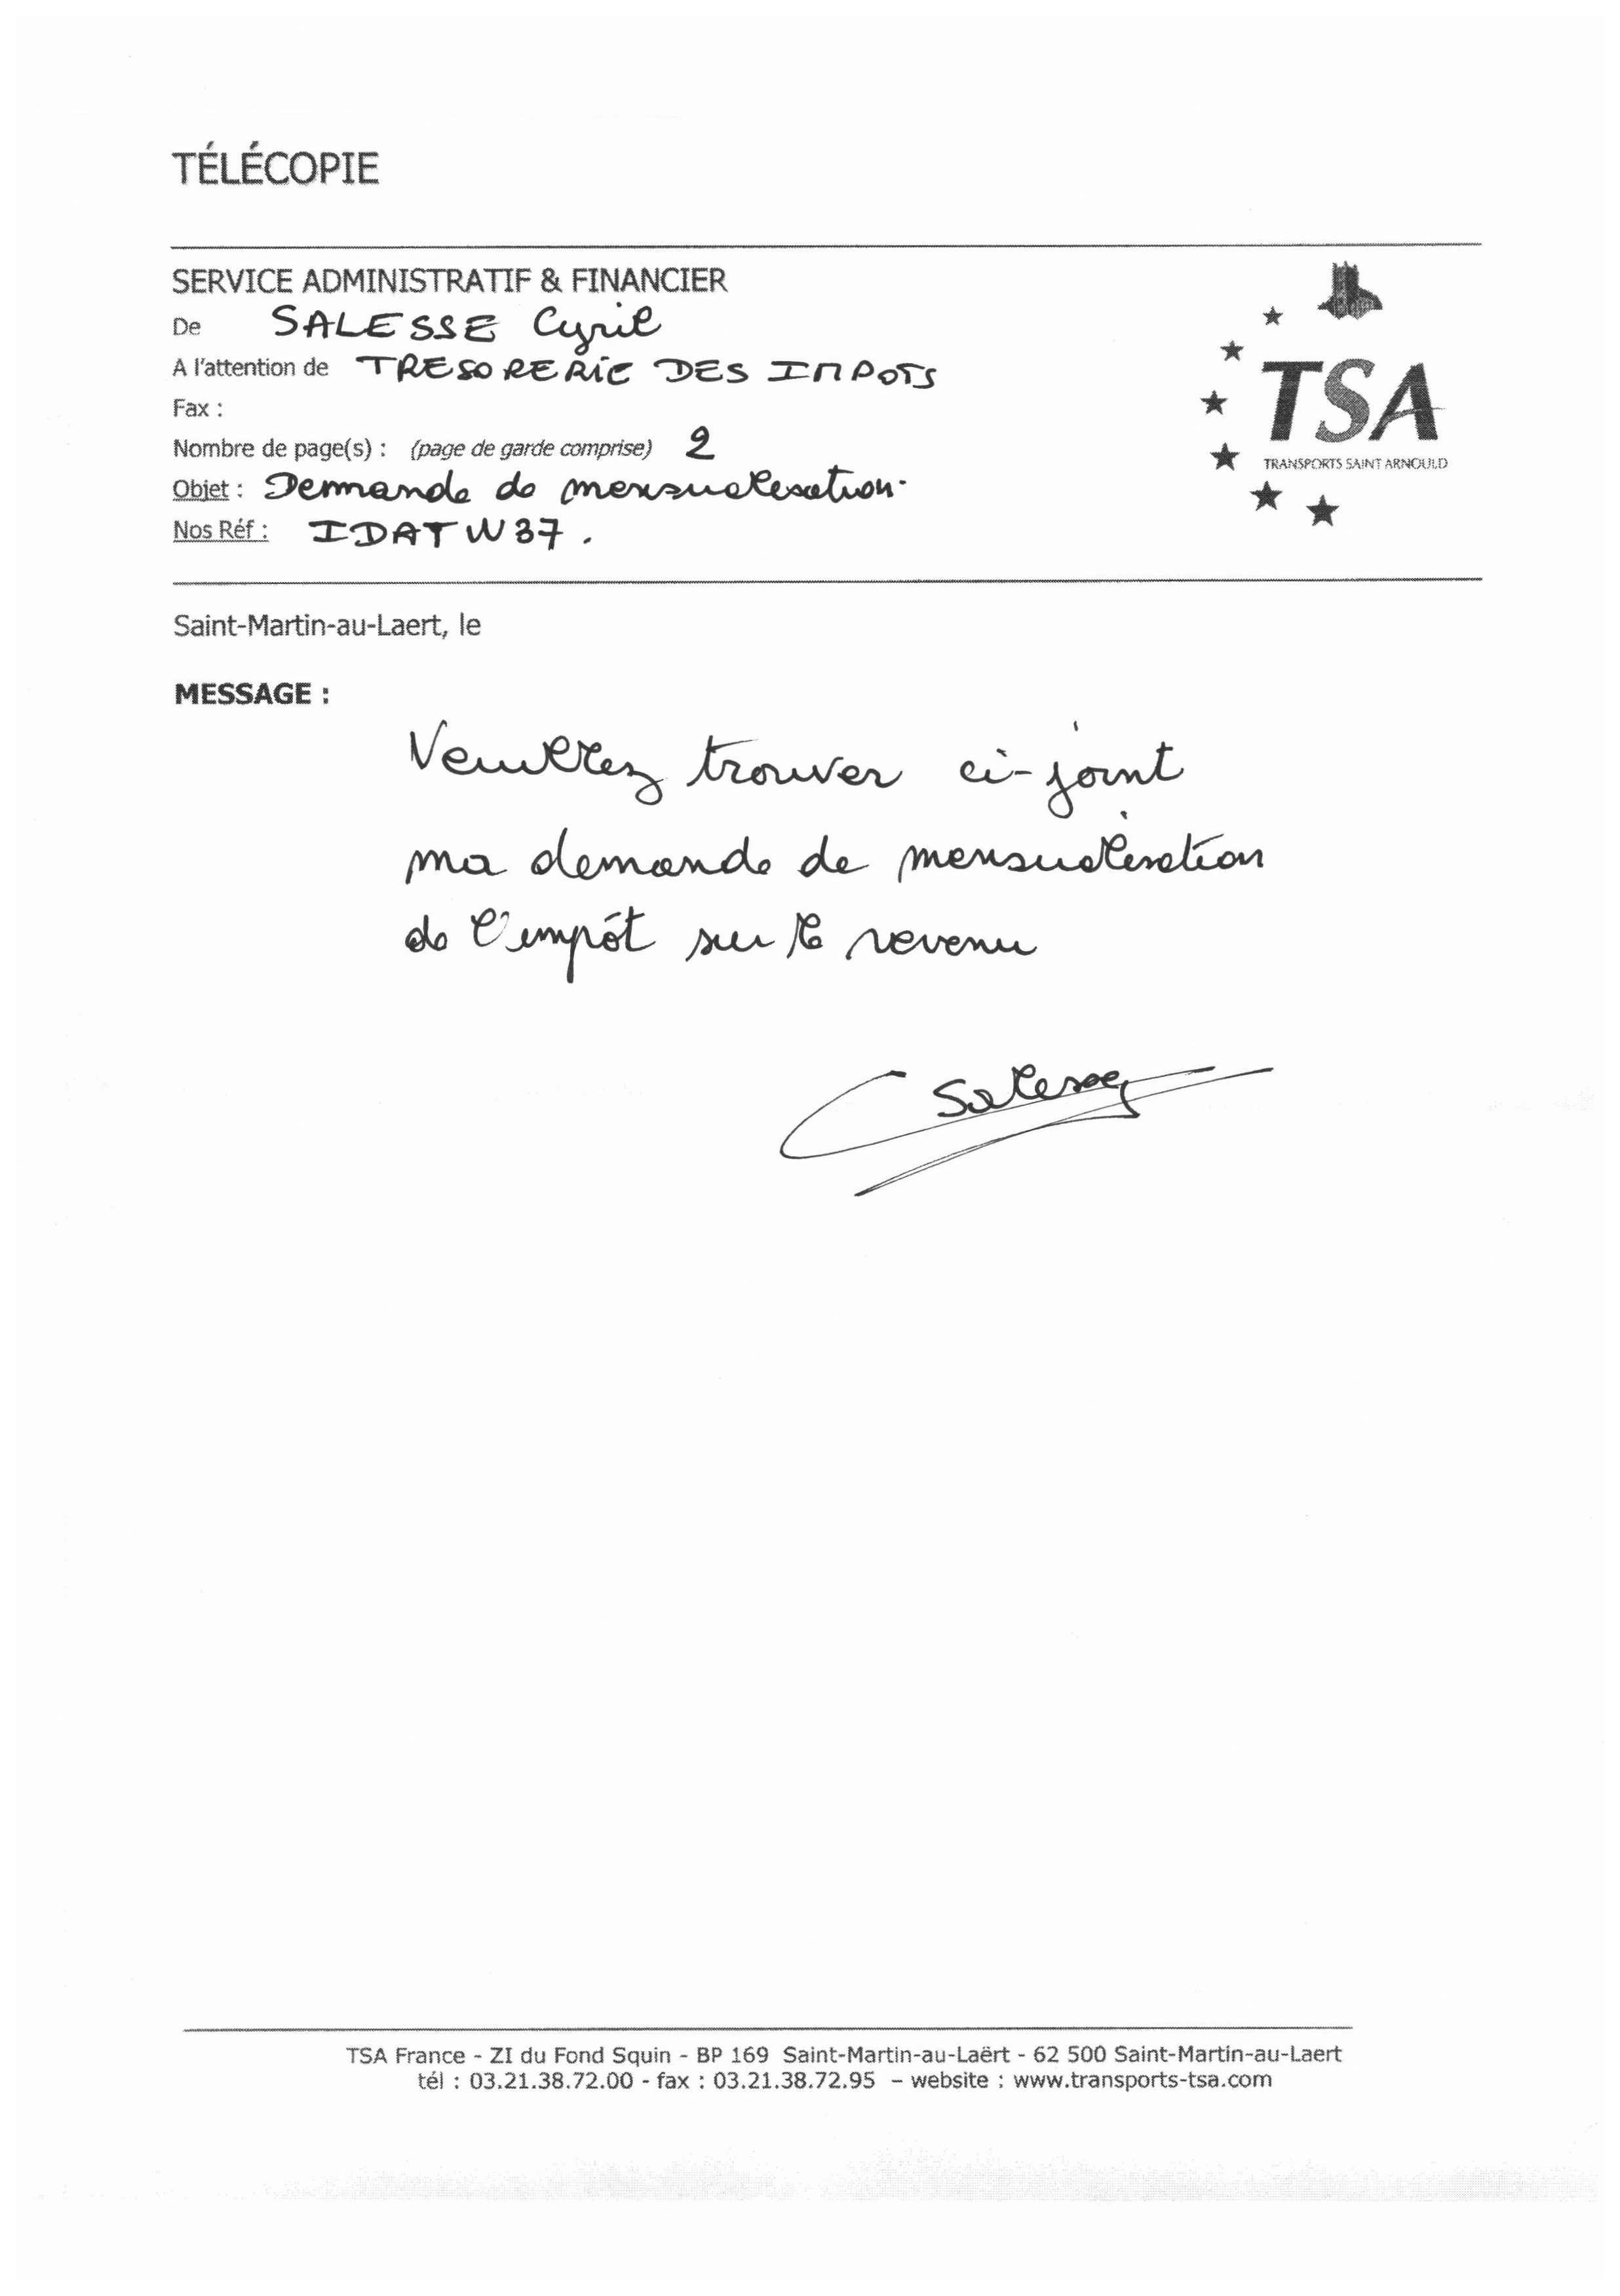 TÉLÉCOPIE
SERVICE ADMINISTRATIF & FINANCIER
De SALESSE Cyril
A l'attention de TRESORERIE DES IMPOTS
Fax :
Nombre de page(s) : (page de garde comprise) 2
Objet : Demande de mensualisation.
Nos Réf : IDATW37.
TSA
TRANSPORTS SAINT ARNOULD
Saint-Martin-au-Laert, le
MESSAGE :
Veuillez trouver ci-joint
ma demande de mensualisation
de l'impôt sur le revenu
Salesse
TSA France - ZI du Fond Squin - BP 169 Saint-Martin-au-Laërt - 62 500 Saint-Martin-au-Laert
tél : 03.21.38.72.00 - fax : 03.21.38.72.95 – website : www.transports-tsa.com